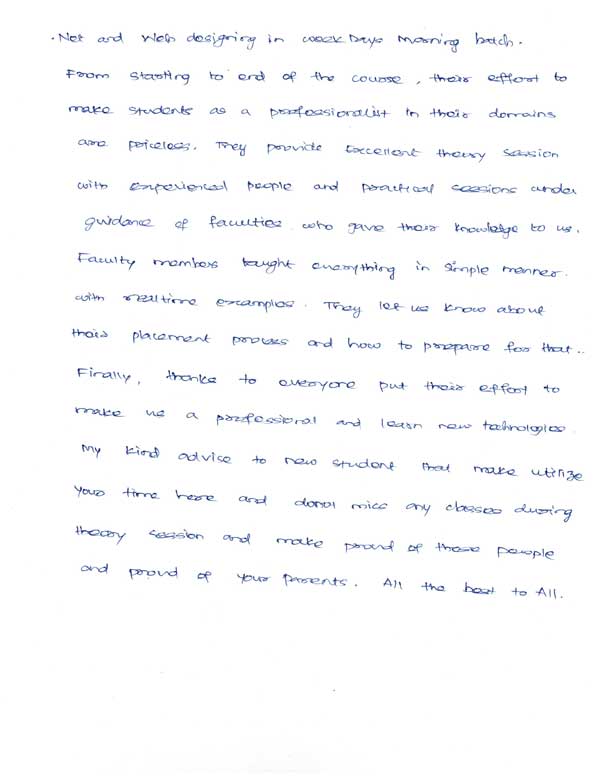 .Net and Web designing in week Days Morning batch.
From starting to end of the course, their effort to
make students as a professionalist in their domains
are priceless. They provide Excellent theory session
with experienced people and practical sessions under
guidance of faculties who gave their knowledge to us.
Faculty members taught everything in simple manner.
with realtime examples. They let us know about
their placement process and how to prepare for that..
Finally, thanks to everyone put their effort to
make us a professional and learn new technologies.
My kind advice to new student that make utilize
your time here and donot miss any classes during
theory session and make proud of these people
and proud of your parents. All the best to All.